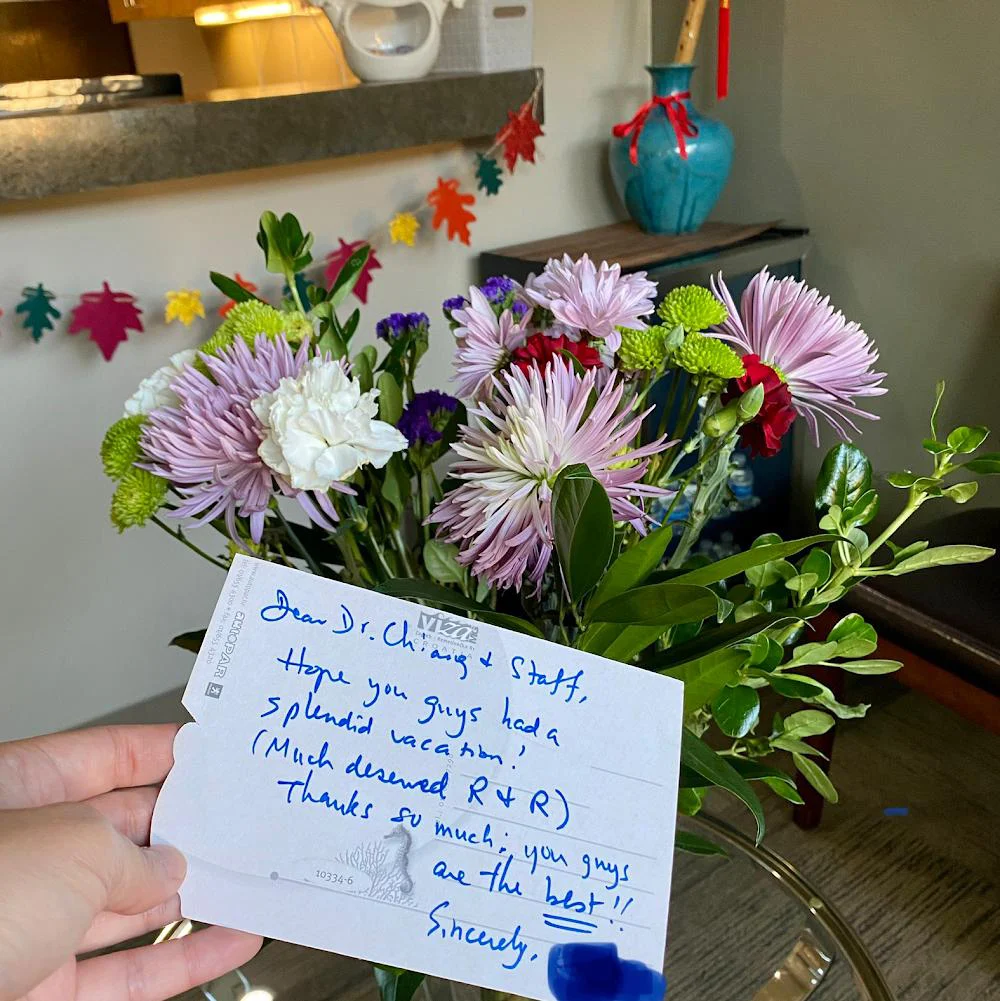 Dear Dr. Chiang & Staff,
Hope you guys had a
splendid vacation!
(Much deserved R & R)
Thanks so much; you guys
are the best!!
Sincerely,
viza
CROATIA
AMIOPAR
10334-6